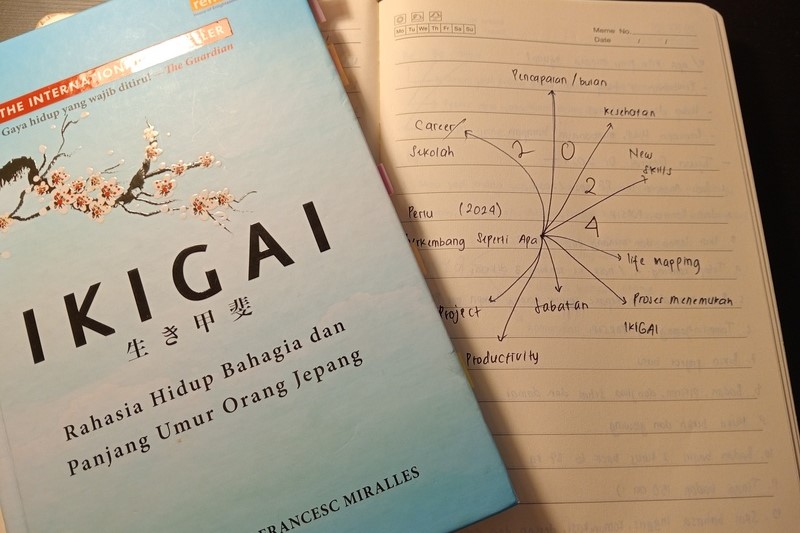 THE INTERNATIONAL
Gaya hidup yang wajib ditiru! – The Guardian
IKIGAI
生き甲斐
Rahasia Hidup Bahagia dan
Panjang Umur Orang Jepang
FRANCESC MIRALLES
Mo Tu We Th Fr Sa Su
Memo No.
Date / /
Pencapaian / bulan
Career/
Sekolah
Kesehatan
New
Skills
2 0 2 4
Perlu (2024)
Berkembang Seperti Apa
life mapping
Proses menemukan
IKIGAI
Jabatan
Project
Productivity